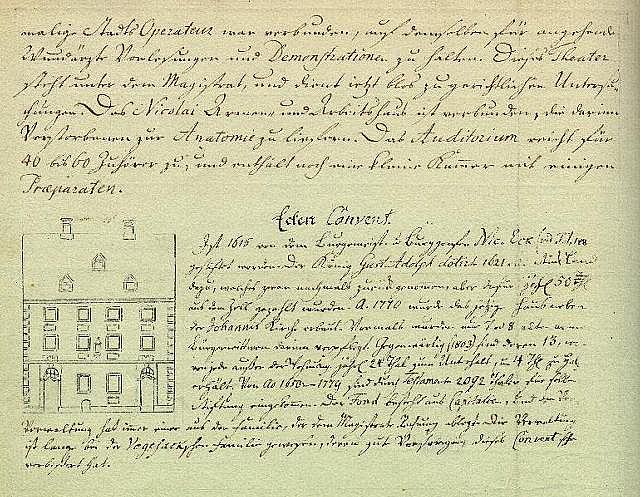 malige Stadts Operateur war verbunden, auf demselben für angehende
Wundärzte Vorlesungen und Demonstrationen zu halten. Dieses Theater
steht unter dem Magistrat, und dient jetzt blos zu gerichtlichen Untersu-
chungen. Das Nicolai Armen- und Arbeitshaus ist verbunden, die darinn
Verstorbenen zur Anatomie zu liefern. Das Auditorium reicht für
40 bis 60 Zuhörer zu, und enthält noch eine kleine Kammer mit einigen
Præparaten.
Ecken Convent.
Ist 1615 von dem Burgemeist. u. Burggrafen Nic. Eck
gestiftet worden. Der König Gust. Adolph dotirt 1621
dazu, welches zwar nachmals zurück genommen, aber dafür jährl. 50
aus dem Zoll gezahlt wurden. A. 1770 wurde das jetzige Haus neben
der Johannis Kirche erbaut. Vormals wurden nur 7 od 8 alte arme
Bürgerwittwen darinn verpflegt. Gegenwärtig (1803) sind deren 13,
ausser der Wohnung, jährl. 24 Thal. zum Unterhalt, u. 14 Thl. zu Holz
erhält. Von Ao 1650-1779 sind durch Testamente 2092 Thaler dieser
Stiftung eingekommen. Der Fond besteht aus Capitalien, und die
Verwaltung hat immer einer aus der Familie, der dem Magistrate Rechnung ablegt. Die Verwaltung
ist lange bei der Vegesackschen Familie gewesen, deren gute Vorsorge dieses Convent sehr
verbessert hat.